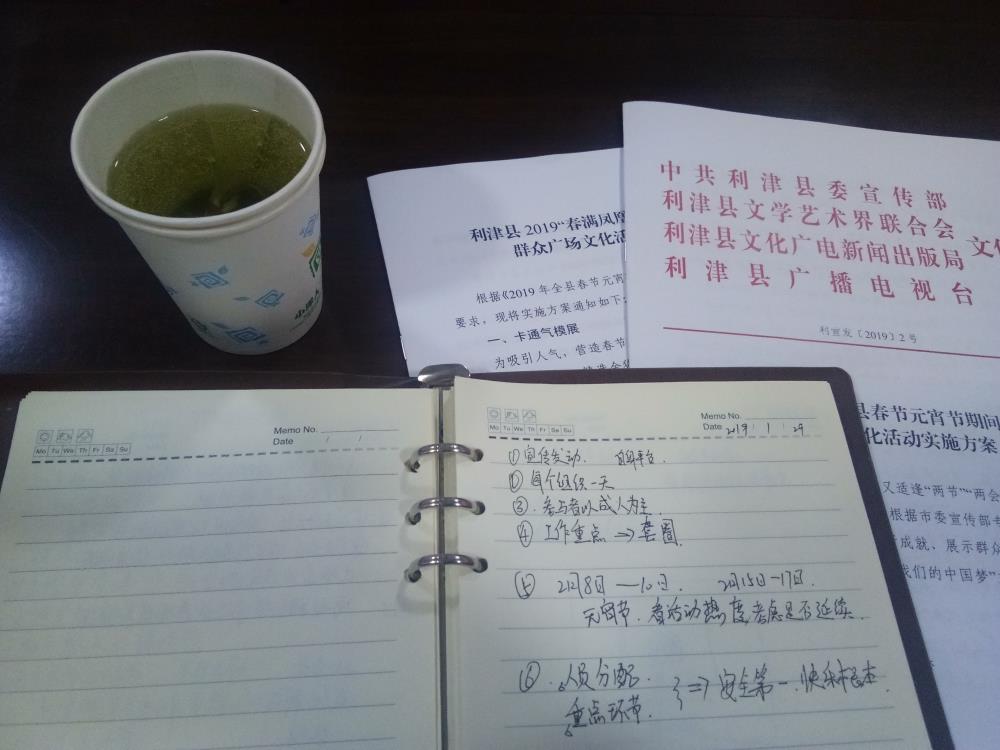 利津县2019“春满凤凰
群众广场文化活
根据《2019年全县春节元宵
要求，现将实施方案通知如下:
一、卡通气模展
为吸引人气，营造春节
中共利津县委宣传部
利津县文学艺术界联合会
利津县文化广电新闻出版局 文化
利津县广播电视台
利宣发〔2019〕2号
县春节元宵节期间
化活动实施方案
又适逢“两节”“两会
根据市委宣传部
成就、展示群众
我们的中国梦”
Memo No.
Date / /
Mo Tu We Th Fr Sa Su
Memo No.
Date 2019 / 1 / 29
Mo Tu We Th Fr Sa Su
① 宣传发动. 自身平台.
② 每个组织一天
③. 参与者以成人为主.
④ 工作重点 ⇒ 套圈.
⑤ 2月8日—10日. 2月15日-17日.
元宵节.看活动热度考虑是否延续.
⑥ .人员分配.
重点环节. } ⇒ 安全第一.快乐根本.